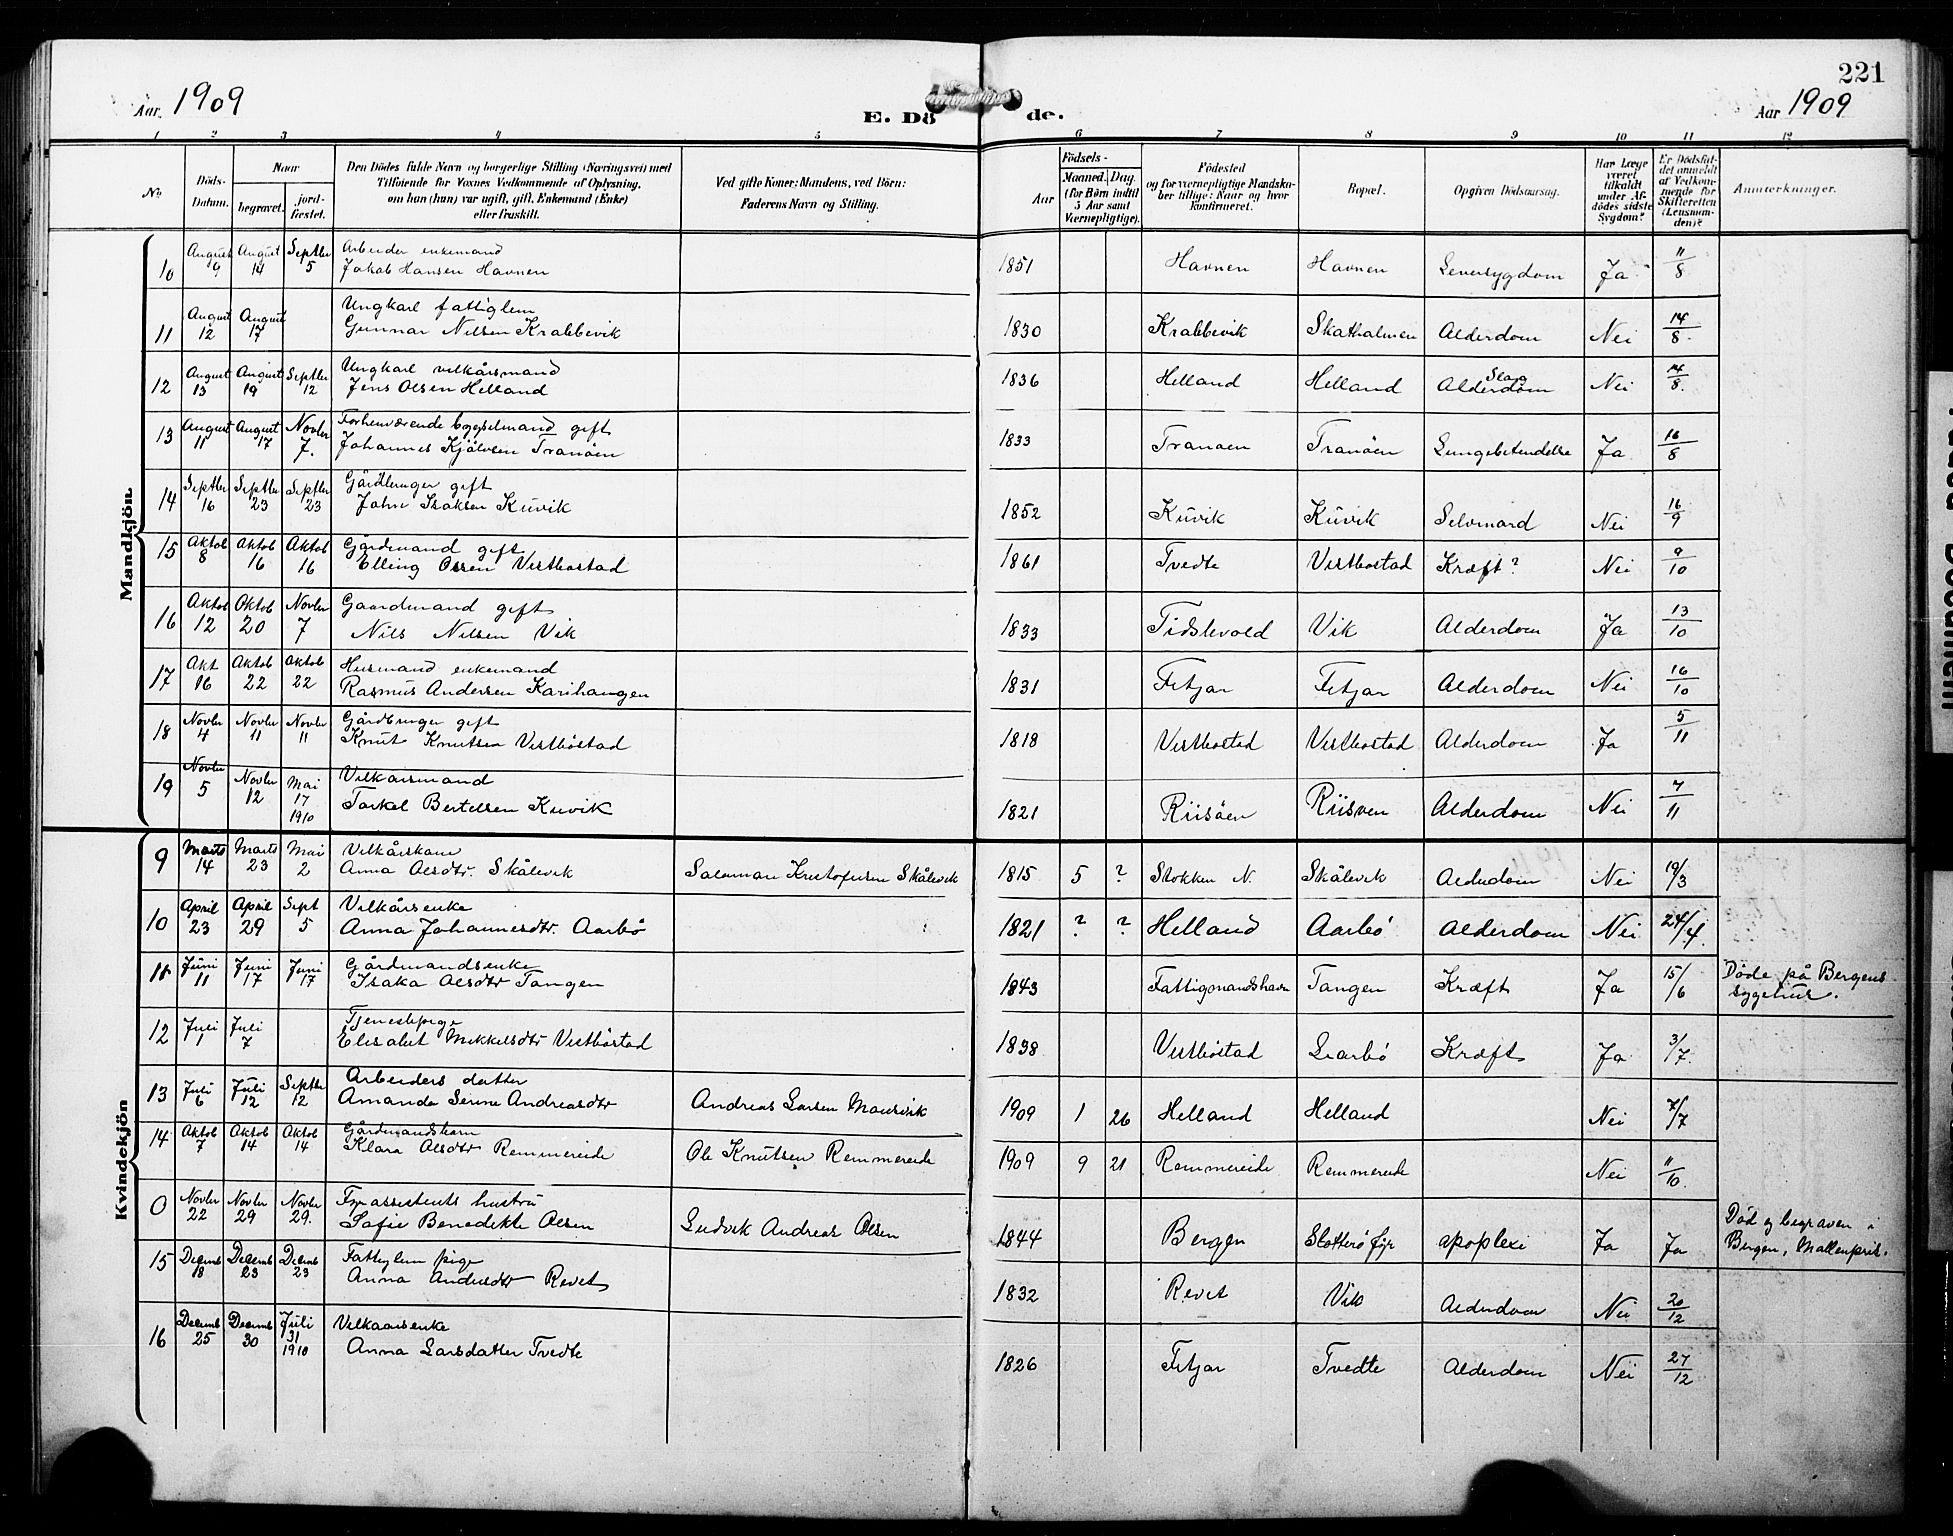 221
Aar 1909 E. Dö de. Aar 1909
1 2 3 4 5 6 7 8 9 10 11 12
No. Döds-Datum. Naar begravet. jordfæstet. Den Dödes fulde Navn og borgerlige Stilling (Næringsvei) med Tilföiende for Voxnes Vedkommende af Oplysning, om han (hun) var ugift, gift, Enkemand (Enke) eller fraskilt. Ved gifte Koner: Mandens, ved Börn: Faderens Navn og Stilling. Födsels- Aar Maaned. Dag. (for Börn indtil 5 Aar samt Værnepligtige). Födested og for værnepligtige Mandskaber tillige: Naar og hvor konfirmeret. Bopæl. Opgiven Dödsaarsag. Har Læge været tilkaldt under Afdödes sidste Sygdom? Er Dödsfaldet anmeldt af Vedkommende for Skifteretten (Lensmanden)? Anmærkninger.
Mandkjön.
10 August 9 August 14 Septbr 5 Arbeider enkemand
Jakob Hansen Havnen 1851 Havnen Havnen Leversygdom Ja 11/8
11 August 12 August 17 Ungkarl fattiglem
Gunnar Nilsen Krabbevik 1830 Krabbevik Skatholmen Alderdom Nei 14/8
12 August 13 August 19 Septbr 12 Ungkarl vilkårsmand
Jens Olsen Helland 1836 Helland Helland Slag Alderdom Nei 14/8
13 August 11 August 17 Novbr 7. Forhenværende bygselmand gift
Johannes Kjålvsen Tranöen 1833 Tranöen Tranöen Lungebetendelse Ja 16/8
14 Septbr 16 Septbr 23 Septbr 23 Gårdbruger gift
Johne Isaksen Kuvik 1852 Kuvik Kuvik Selvmord Nei 16/9
15 Aktob 8 Aktob 16 Aktob 16 Gårdmand gift
Elling Olsen Vestbostad 1861 Tvedte Vestbostad Kræft? Nei 9/10
16 Aktob 12 Oktob 20 Novbr 7 Gaardmand gift
Nils Nilsen Vik 1833 Tidslevold Vik Alderdom Ja 13/10
17 Akt 16 Aktob 22 Aktob 22 Husmand enkemand
Rasmus Andersen Karihaugen 1831 Fitjar Fitjar Alderdom Nei 16/10
18 Novbr 4 Novbr 11 Novbr 11 Gårdbruger gift
Knut Knutsen Vestböstad 1818 Vestbostad Vestbostad Alderdom Ja 5/11
19 Novbr 5 Novbr 12 Mai 17 1910 Vilkaarsmand
Torkel Bertelsen Kuvik 1821 Riisöen Riisven Alderdom Nei 7/11
Kvindekjön
9 Marts 14 Marts 23 Mai 2 Vilkårskone
Anna Olsdtr. Skålevik Salamon Kristofersen Skålevik 1815 5 ? Stokken N. Skålevik Alderdom Nei 19/3
10 April 23 April 29 Sept 5 Vilkårsenke
Anna Johannesdtr. Aarbö 1821 ? ? Helland Aarbö Alderdom Nei 24/4.
11 Juni 11 Juni 17 Juni 17 Gårdmandsenke
Isaka Olsdtr Tangen 1843 Fattigmandshavn Tangen Kræft Ja 15/6 Döde på Bergens sygehus.
12 Juli 1 Juli 7 Tjenestpige
Elisabet Mikkelsdtr Vestböstad 1838 Vestböstad Aarbö Kræft Ja 3/7
13 Juli 6 Juli 12 Septbr 12 Arbeiders datter
Amanda Serine Andreasdtr Andreas Larsen 1909 1 26 Helland Helland Nei 7/7
14 Aktob 7 Aktob 14 Aktob 14 Gårdmandsbarn
Klara Olsdtr Remmereide Ole Knutsen Remmereide 1909 9 21 Remmereide Remmereide Nei 11/10.
0 Novbr 22 Novbr 29 Novbr 29. Fyrassistents hustru
Sofie Benedikte Olsen Ludvik Andreas Olsen 1844 Bergen Slotterö fyr apoplexi Ja Ja Död og begraven i Bergen,
15 Decemb 18 Decemb 23 Decemb 23 Fattiglem pige
Anna Andersdtr Revet 1832 Revet Vik Alderdom Nei 20/12
16 Decemb 25 Decemb 30 Juli 31 1910 Vilkaarsenke
Anna Larsdatter Tvedte 1826 Fitjar Tvedte Alderdom Nei 27/12